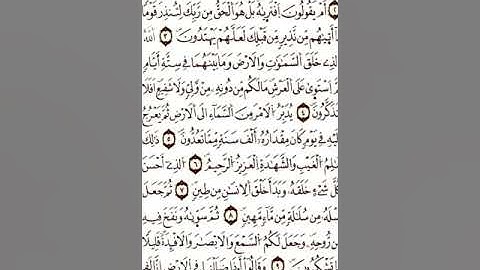 أَمْ يَقُولُونَ افْتَرَيٰهُ بَلْ هُوَ الْحَقُّ مِن رَّبِّكَ لِتُنذِرَ قَوْمًا
أَتَيٰهُم مِّن نَّذِيرٍ مِّن قَبْلِكَ لَعَلَّهُمْ يَهْتَدُونَ ٣ اللهُ
الَّذِي خَلَقَ السَّمَٰوَٰتِ وَالْأَرْضَ وَمَا بَيْنَهُمَا فِي سِتَّةِ أَيَّامٍ
اسْتَوَىٰ عَلَى الْعَرْشِ مَا لَكُم مِّن دُونِهِ مِن وَلِيٍّ وَلَا شَفِيعٍ أَفَلَا
تَذَكَّرُونَ ٤ يُدَبِّرُ الْأَمْرَ مِنَ السَّمَاءِ إِلَى الْأَرْضِ ثُمَّ يَعْرُجُ
إِلَيْهِ فِي يَوْمٍ كَانَ مِقْدَارُهُ أَلْفَ سَنَةٍ مِّمَّا تَعُدُّونَ ٥ ذَٰلِكَ
عَٰلِمُ الْغَيْبِ وَالشَّهَٰدَةِ الْعَزِيزُ الرَّحِيمُ ٦ الَّذِي أَحْسَنَ
كُلَّ شَيْءٍ خَلَقَهُ وَبَدَأَ خَلْقَ الْإِنسَٰنِ مِن طِينٍ ٧ ثُمَّ جَعَلَ
نَسْلَهُ مِن سُلَٰلَةٍ مِّن مَّاءٍ مَّهِينٍ ٨ ثُمَّ سَوَّىٰهُ وَنَفَخَ فِيهِ
مِن رُّوحِهِ وَجَعَلَ لَكُمُ السَّمْعَ وَالْأَبْصَٰرَ وَالْأَفْئِدَةَ قَلِيلًا
تَشْكُرُونَ ٩ وَقَالُوا أَإِذَا ضَلَلْنَا فِي الْأَرْضِ